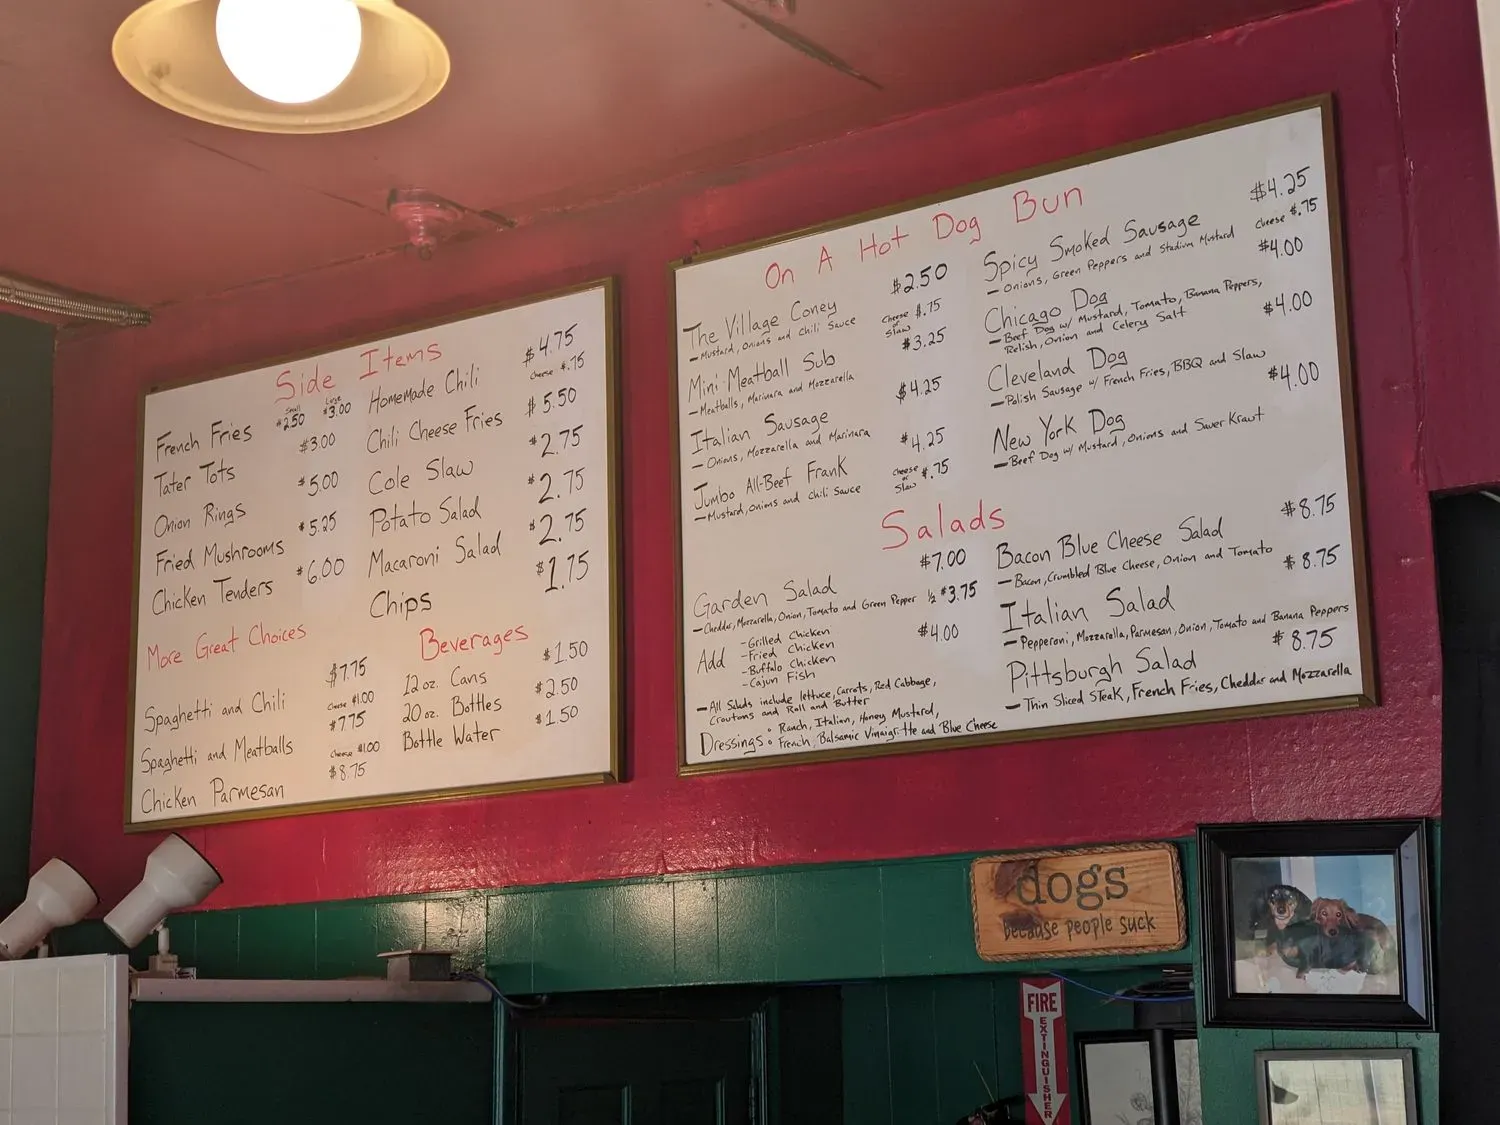 Side Items
Small Large
French Fries $2.50 $3.00
Tater Tots $3.00
Onion Rings $5.00
Fried Mushrooms $5.25
Chicken Tenders $6.00
Homemade Chili $4.75
Cheese $.75
Chili Cheese Fries $5.50
Cole Slaw $2.75
Potato Salad $2.75
Macaroni Salad $2.75
Chips $1.75
More Great Choices
Spaghetti and Chili $7.75
Cheese $1.00
Spaghetti and Meatballs $7.75
Cheese $1.00
Chicken Parmesan $8.75
Beverages
12 oz. Cans $1.50
20 oz. Bottles $2.50
Bottle Water $1.50
On A Hot Dog Bun
The Village Coney $2.50
- Mustard, Onions and Chili Sauce Cheese or Slaw $.75
Mini Meatball Sub $3.25
- Meatballs, Marinara and Mozzarella
Italian Sausage $4.25
- Onions, Mozzarella and Marinara
Jumbo All-Beef Frank $4.25
- Mustard, Onions and Chili Sauce Cheese or Slaw $.75
Spicy Smoked Sausage $4.25
- Onions, Green Peppers and Stadium Mustard Cheese $.75
Chicago Dog $4.00
- Beef Dog w/ Mustard, Tomato, Banana Peppers,
Relish, Onion and Celery Salt
Cleveland Dog $4.00
- Polish Sausage w/ French Fries, BBQ and Slaw
New York Dog $4.00
- Beef Dog w/ Mustard, Onions and Sauer Kraut
Salads
Garden Salad $7.00
- Cheddar, Mozzarella, Onion, Tomato and Green Pepper 1/2 $3.75
Add $4.00
- Grilled Chicken
- Fried Chicken
- Buffalo Chicken
- Cajun Fish
- All Salads include lettuce, Carrots, Red Cabbage,
Croutons and Roll and Butter
Dressings: Ranch, Italian, Honey Mustard,
French, Balsamic Vinaigrette and Blue Cheese
Bacon Blue Cheese Salad $8.75
- Bacon, Crumbled Blue Cheese, Onion and Tomato
Italian Salad $8.75
- Pepperoni, Mozzarella, Parmesan, Onion, Tomato and Banana Peppers
Pittsburgh Salad $8.75
- Thin Sliced Steak, French Fries, Cheddar and Mozzarella
dogs
because people suck
FIRE
EXTINGUISHER